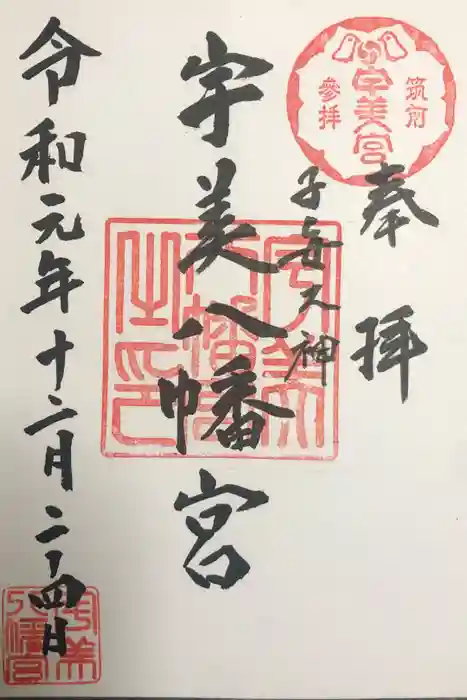 奉拝
筑前
宇美宮
參拝
子安大神
宇美八幡宮
宇美八幡宮之印
令和元年十二月二十四日
宇美八幡宮